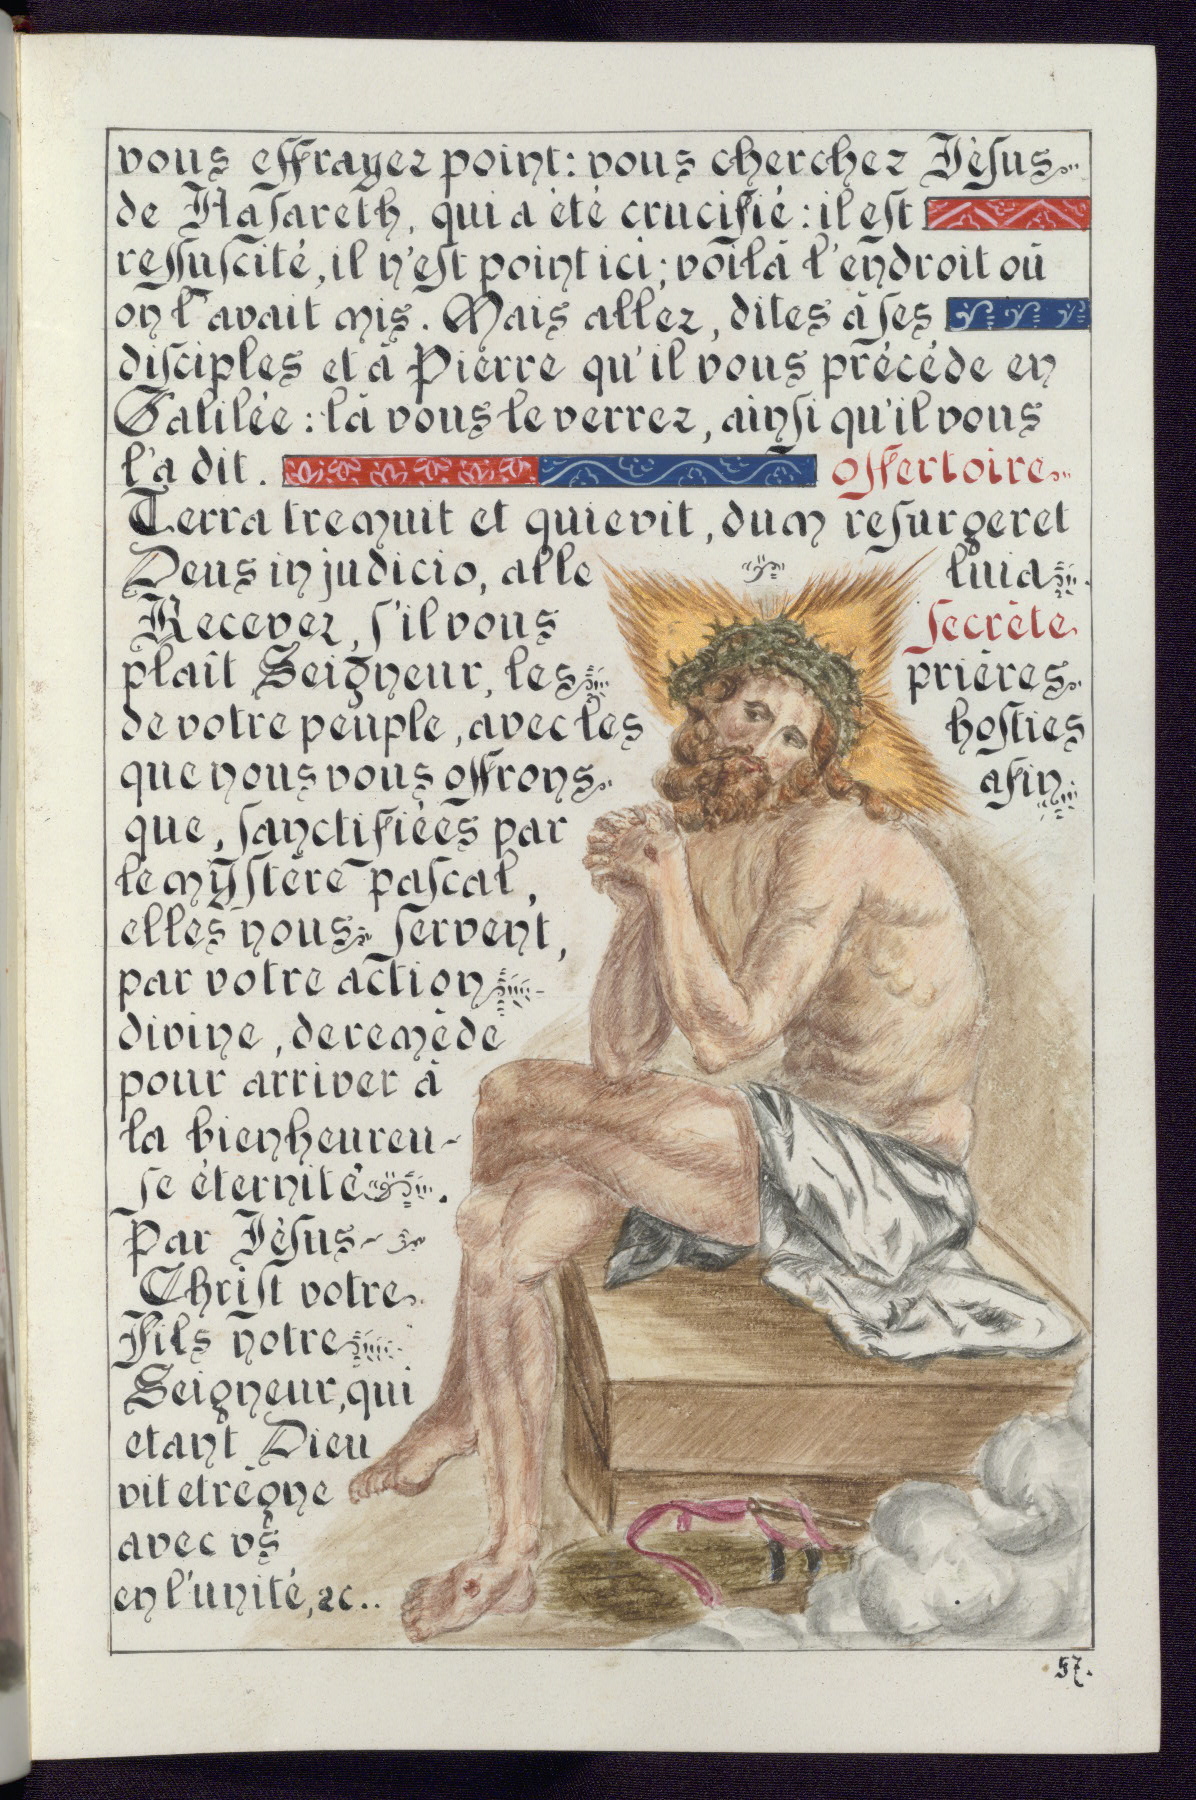 vous effrayez point: vous cherchez Jèsus
de Nasareth, qui a été crucifié: il est
ressuscité, il n'est point ici; voilà l'endroit où
on l'avait mis. Mais allez, dites à ses
disciples et à Pierre qu'il vous précéde en
Galilée: là vous le verrez, ainsi qu'il vous
l'a dit. offertoire
Terra tremuit et quievit, dum resurgeret
Deus in judicio, alleluia
Recevez, s'il vous secrète
plaît Seigneur, les prières
de votre peuple, avec les hosties
que nous vous offrons afin
que, sanctifiées par
le mystère pascal,
elles nous servent,
par votre action
divine, de remède
pour arriver à
la bienheureu-
se éternité.
Par Jèsus-
Christ votre
Fils notre
Seigneur, qui
etant Dieu
vit et règne
avec vs
en l'unité, &c..
57.